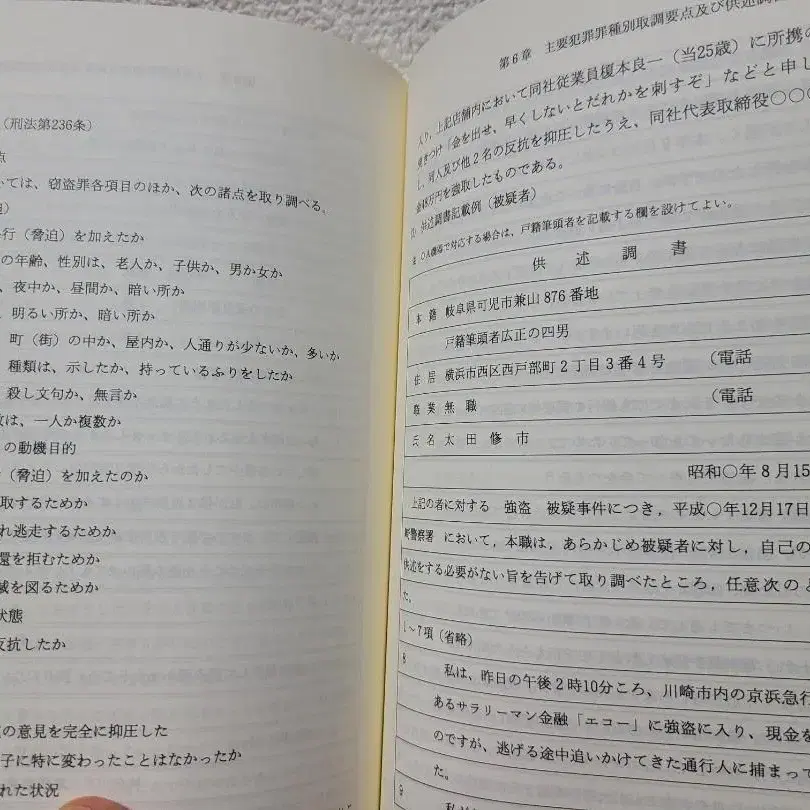 （刑法第236条）
点
いては、窃盗罪各項目のほか、次の諸点を取り調べる。
迫）
行（脅迫）を加えたか
の年齢、性別は、老人か、子供か、男か女か
、夜中か、昼間か、暗い所か
、明るい所か、暗い所か
町（街）の中か、屋内か、人通りが少ないか、多いか
種類は、示したか、持っているふりをしたか
殺し文句か、無言か
数は、一人か複数か
の動機目的
（脅迫）を加えたのか
取するためか
れ逃走するためか
還を拒むためか
滅を図るためか
状態
反抗したか
の意見を完全に抑圧した
子に特に変わったことはなかったか
れた状況
第６章　主要犯罪罪種別取調要点及び供述調
入り、上記店舗内において同社従業員榎本良一（当25歳）に所携の
突きつけ「金を出せ、早くしないとだれかを刺すぞ」などと申し
し、同人及び他２名の反抗を抑圧したうえ、同社代表取締役〇〇〇
金48万円を強取したものである。
供述調書記載例（被疑者）
で対応する場合は、戸籍筆頭者を記載する欄を設けてよい。
供　述　調　書
本　籍　岐阜県可児市兼山876番地
戸籍筆頭者広正の四男
住　居　横浜市西区西戸部町２丁目３番４号　（電話
職　業　無　職　（電話
氏　名　太　田　修　市
昭和〇年８月15
上記の者に対する　強盗　被疑事件につき，平成〇年12月17日
警察署　において，本職は，あらかじめ被疑者に対し，自己の
供述をする必要がない旨を告げて取り調べたところ，任意次のと
た。
１～７項（省略）
８　私は、昨日の午後２時10分ころ、川崎市内の京浜急行
あるサラリーマン金融「エコー」に強盗に入り、現金を
のですが、逃げる途中追いかけてきた通行人に捕まって
た。
９　私が